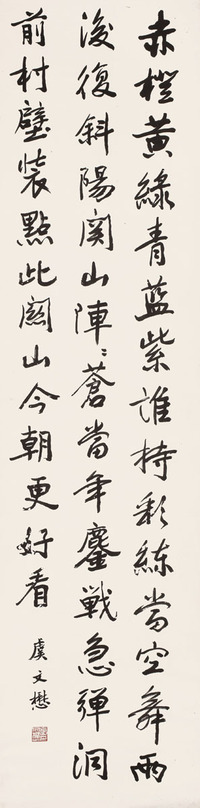 赤橙黃綠青藍紫誰持彩練當空舞雨
後復斜陽関山陣々蒼當年鏖戦急彈洞
前村壁裝點此關山今朝更好看
虞文懋